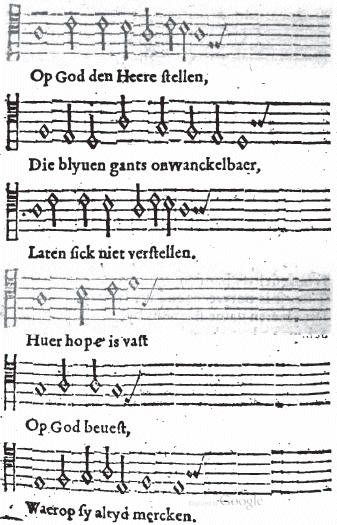 Op God den Heere ſtellen,
Die blyuen gants onwanckelbaer,
Laten ſick niet verſtellen.
Huer hope is vaſt
Op God beueſt,
Google
Waerop ſy altyd mercken.